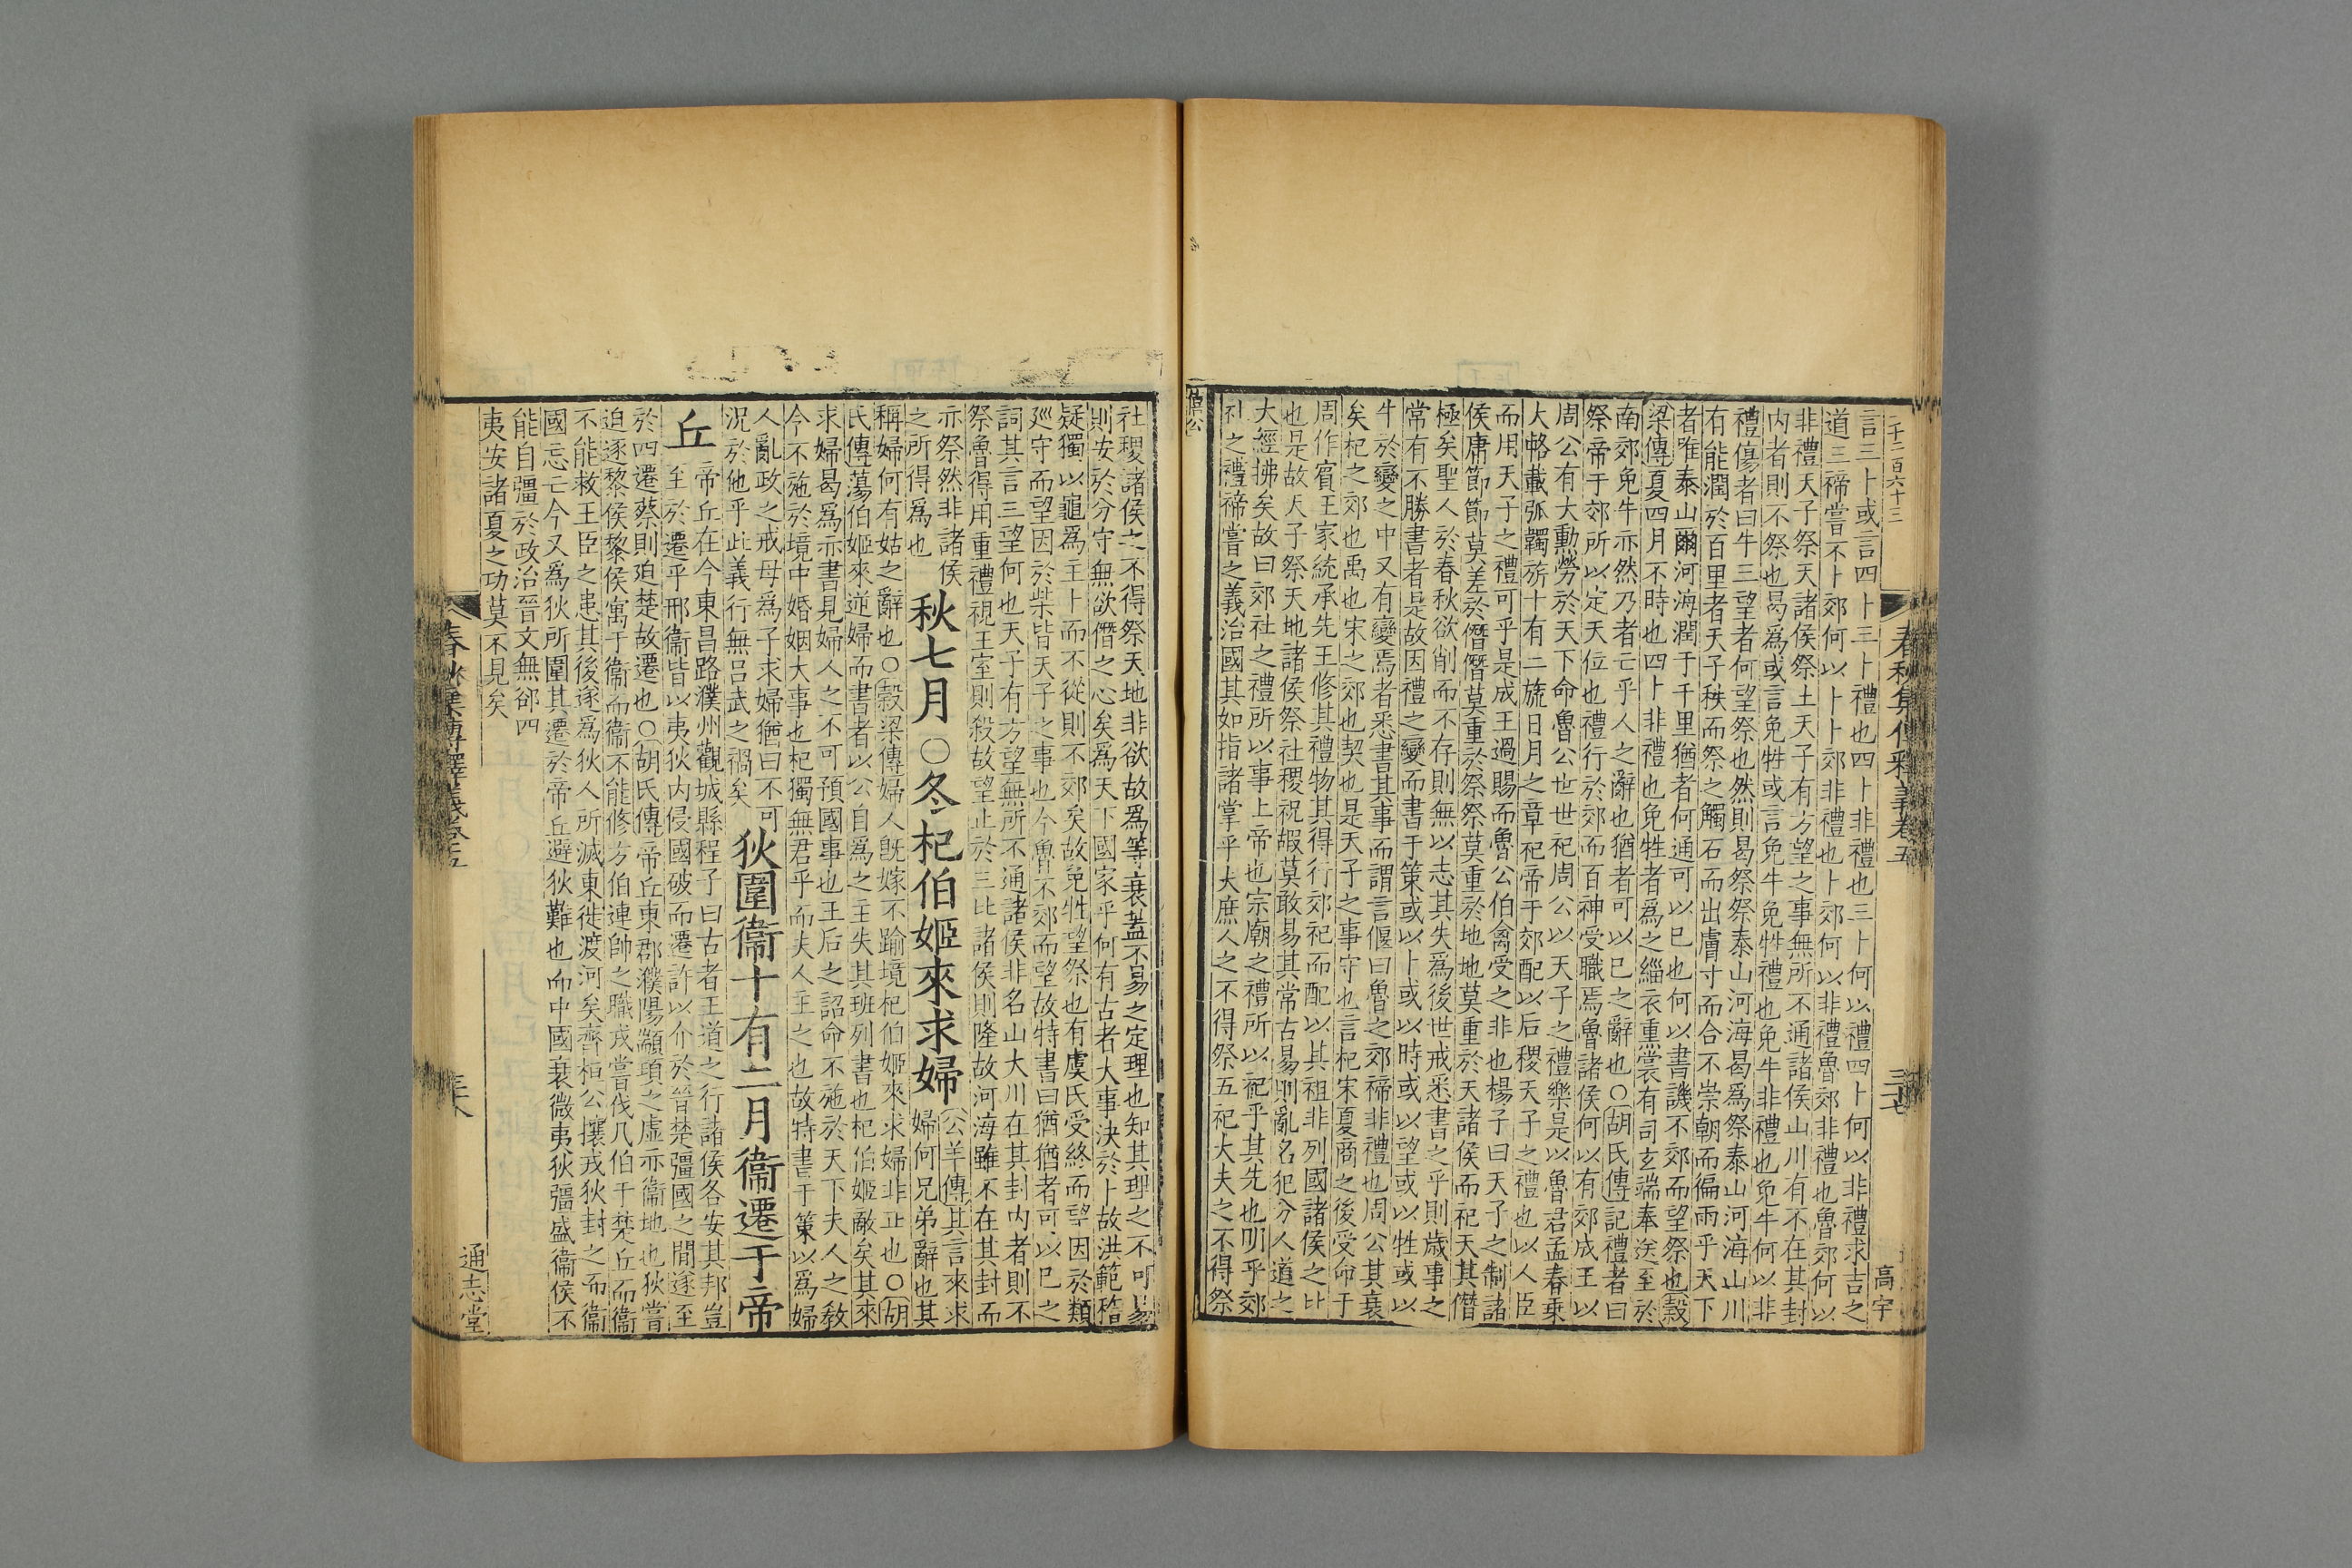 二千二百六十三
春秋集傳釋義卷五
三十七
高宇
言三卜或言四卜三卜禮也四卜非禮也三卜何以禮四卜何以非禮求吉之
道三禘嘗不卜郊何以卜卜郊非禮也卜郊何以非禮魯郊非禮也魯郊何以
非禮天子祭天諸侯祭土天子有方望之事無所不通諸侯山川有不在其封
内者則不祭也曷爲或言免牲或言免牛免牲禮也免牛非禮也免牛何以非
禮傷者曰牛三望者何望祭也然則曷祭祭泰山河海曷爲祭泰山河海山川
有能潤於百里者天子秩而祭之觸石而出膚寸而合不崇朝而徧雨乎天下
者唯泰山爾河海潤于千里猶者何通可以已也何以書譏不郊而望祭也穀
梁傳夏四月不時也四卜非禮也免牲者爲之緇衣熏裳有司玄端奉送至於
南郊免牛亦然乃者亡乎人之辭也猶者可以已之辭也○胡氏傳記禮者曰
祭帝于郊所以定天位也禮行於郊而百神受職焉魯諸侯何以有郊成王以
周公有大勳勞於天下命魯公世世祀周公以天子之禮樂是以魯君孟春乘
大輅載弧韣旂十有二旒日月之章祀帝于郊配以后稷天子之禮也以人臣
而用天子之禮可乎是成王過賜而魯公伯禽受之非也楊子曰天子之制諸
侯庸節節莫差於僭僭莫重於祭祭莫重於地地莫重於天諸侯而祀天其僭
極矣聖人於春秋欲削而不存則無以志其失爲後世戒悉書之乎則歲事之
常有不勝書者是故因禮之變而書于策或以卜或以時或以望或以牲或以
牛於變之中又有變焉者悉書其事而謂言偃曰魯之郊禘非禮也周公其衰
矣杞之郊也禹也宋之郊也契也是天子之事守也言杞宋夏商之後受命于
周作賓王家統承先王修其禮物其得行郊祀而配以其祖非列國諸侯之比
也是故天子祭天地諸侯祭社稷祝嘏莫敢易其常古易則亂名犯分人道之
大經拂矣故曰郊社之禮所以事上帝也宗廟之禮所以祀乎其先也明乎郊
社之禮禘嘗之義治國其如指諸掌乎夫庶人之不得祭五祀大夫之不得祭
僖公
社稷諸侯之不得祭天地非欲故爲等衰蓋不易之定理也知其理之不可易
則安於分守無欲僭之心矣爲天下國家乎何有古者大事決於卜故洪範稽
疑獨以龜爲主卜而不從則不郊矣故免牲望祭也有虞氏受終而望因於類
廵守而望因於柴皆天子之事也今魯不郊而望故特書曰猶猶者可以已之
詞其言三望何也天子有方望無所不通諸侯非名山大川在其封内者則不
祭魯得用重禮視王室則殺故望止於三比諸侯則隆故河海雖不在其封而
亦祭然非諸侯
之所得爲也
秋七月○冬杞伯姬來求婦
公羊傳其言來求
婦何兄弟辭也其
稱婦何有姑之辭也○穀梁傳婦人旣嫁不踰境杞伯姬來求婦非正也○胡
氏傳蕩伯姬來逆婦而書者以公自爲之主失其班列書也杞伯姬敵矣其來
求婦曷爲亦書見婦人之不可預國事也王后之詔命不施於天下夫人之敎
今不施於境中婚姻大事也杞獨無君乎而夫人主之也故特書于策以爲婦
人亂政之戒母爲子求婦猶曰不可
況於他乎此義行無呂武之禍矣
狄圍衞十有二月衞遷于帝
丘
帝丘在今東昌路濮州觀城縣程子曰古者王道之行諸侯各安其邦豈
至於遷乎邢衞皆以夷狄内侵國破而遷許以介於晉楚彊國之間遂至
於四遷蔡則廹楚故遷也○胡氏傳帝丘東郡濮陽顓頊之虛亦衞地也狄嘗
迫逐黎侯黎侯寓于衞而衞不能修方伯連帥之職戎嘗伐凡伯于楚丘而衞
不能救王臣之患其後遂爲狄人所滅東徙渡河矣齊桓公攘戎狄封之而衞
國忘亡今又爲狄所圍其遷於帝丘避狄難也而中國衰微夷狄彊盛衞侯不
能自彊於政治晉文無郤四
夷安諸夏之功莫不見矣
春秋集傳釋義卷五
三十八
通志堂